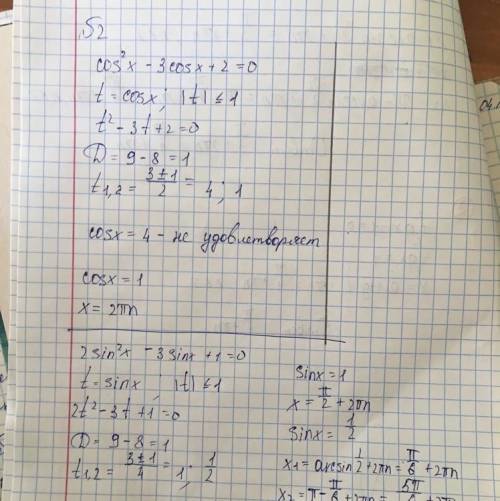 §2
cos²x - 3cosx + 2 = 0
t = cosx; |t| ≤ 1
t² - 3t + 2 = 0
D = 9 - 8 = 1
t1,2 = (3±1)/2 = 4; 1
cosx = 4 - не удовлетворяет
cosx = 1
x = 2πn
2sin²x - 3sinx + 1 = 0
t = sinx; |t| ≤ 1
2t² - 3t + 1 = 0
D = 9 - 8 = 1
t1,2 = (3±1)/4 = 1; 1/2
sinx = 1
x = π/2 + 2πn
sinx = 1/2
x1 = arcsin 1/2 + 2πn = π/6 + 2πn
x2 = π - π/6 + 2πn = 5π/6 + 2πn
04.